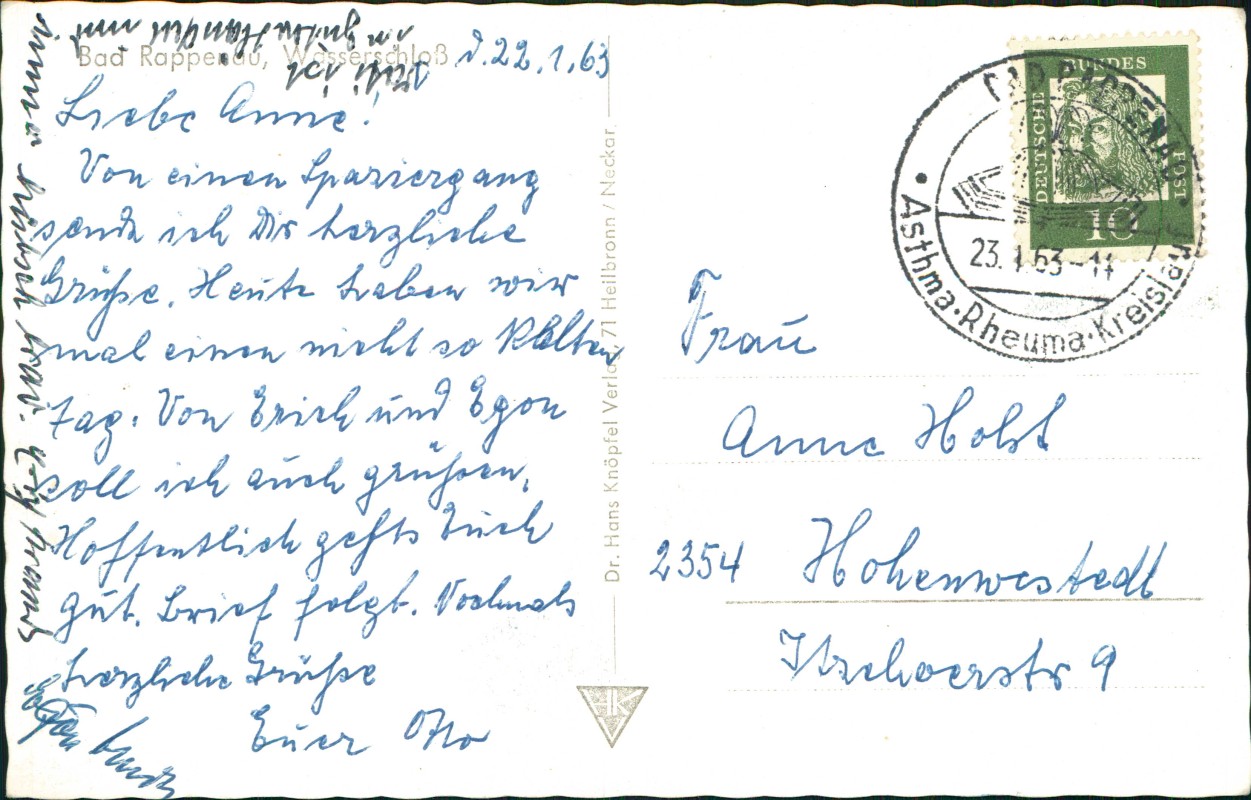 Bad Rappenau, Wasserschloß
d. 22.1.63
Liebe Anne!
Von einen Spaziergang
sende ich Dir herzliche
Grüße. Heute haben wir
mal einen nicht so kalten
Tag. Von Erich und Egon
soll ich auch grüßen.
Hoffentlich gehts Euch
gut. Brief folgt. Nochmals
herzliche Grüße
Euer Otto
immer hübsch war.
in guten Händen und
Dr. Hans Knöpfel Verlag, 71 Heilbronn / Neckar
HK
DEUTSCHE
BUNDES
POST
10
BAD RAPPENAU
23.1.63-11
• Asthma·Rheuma·Kreislauf
Frau
Anne Holst
2354 Hohenwestedt
Itzehoerstr 9